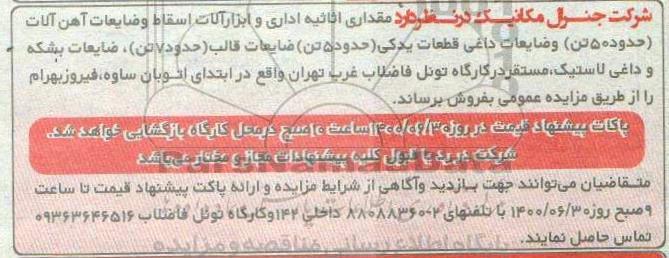 شرکت جنرال مکانیک در نظر دارد مقداری اثاثیه اداری و ابزارآلات اسقاط وضایعات آهن آلات
(حدود۵۰تن) وضایعات داغی قطعات یدکی(حدود۵تن)ضایعات قالب(حدود۷تن)، ضایعات بشکه
و داغی لاستیک،مستقردرکارگاه تونل فاضلاب غرب تهران واقع در ابتدای اتوبان ساوه،فیروزبهرام
را از طریق مزایده عمومی بفروش برساند.
پاکات پیشنهاد قیمت در روز۱۴۰۰/۰۶/۳۰ساعت ۱۰صبح درمحل کارگاه بازگشایی خواهد شد.
شرکت در رد یا قبول کلیه پیشنهادات مجاز و مختار می‌باشد
متقاضیان می‌توانند جهت بازدید وآگاهی از شرایط مزایده و ارائه پاکت پیشنهاد قیمت تا ساعت
۹صبح روز۱۴۰۰/۰۶/۳۰ با تلفنهای ۲-۸۸۰۸۸۳۶۰ داخلی ۱۴۲وکارگاه تونل فاضلاب ۰۹۳۶۳۶۴۶۵۱۶
تماس حاصل نمایند.
پایگاه اطلاع رسانی مناقصه و مزایده